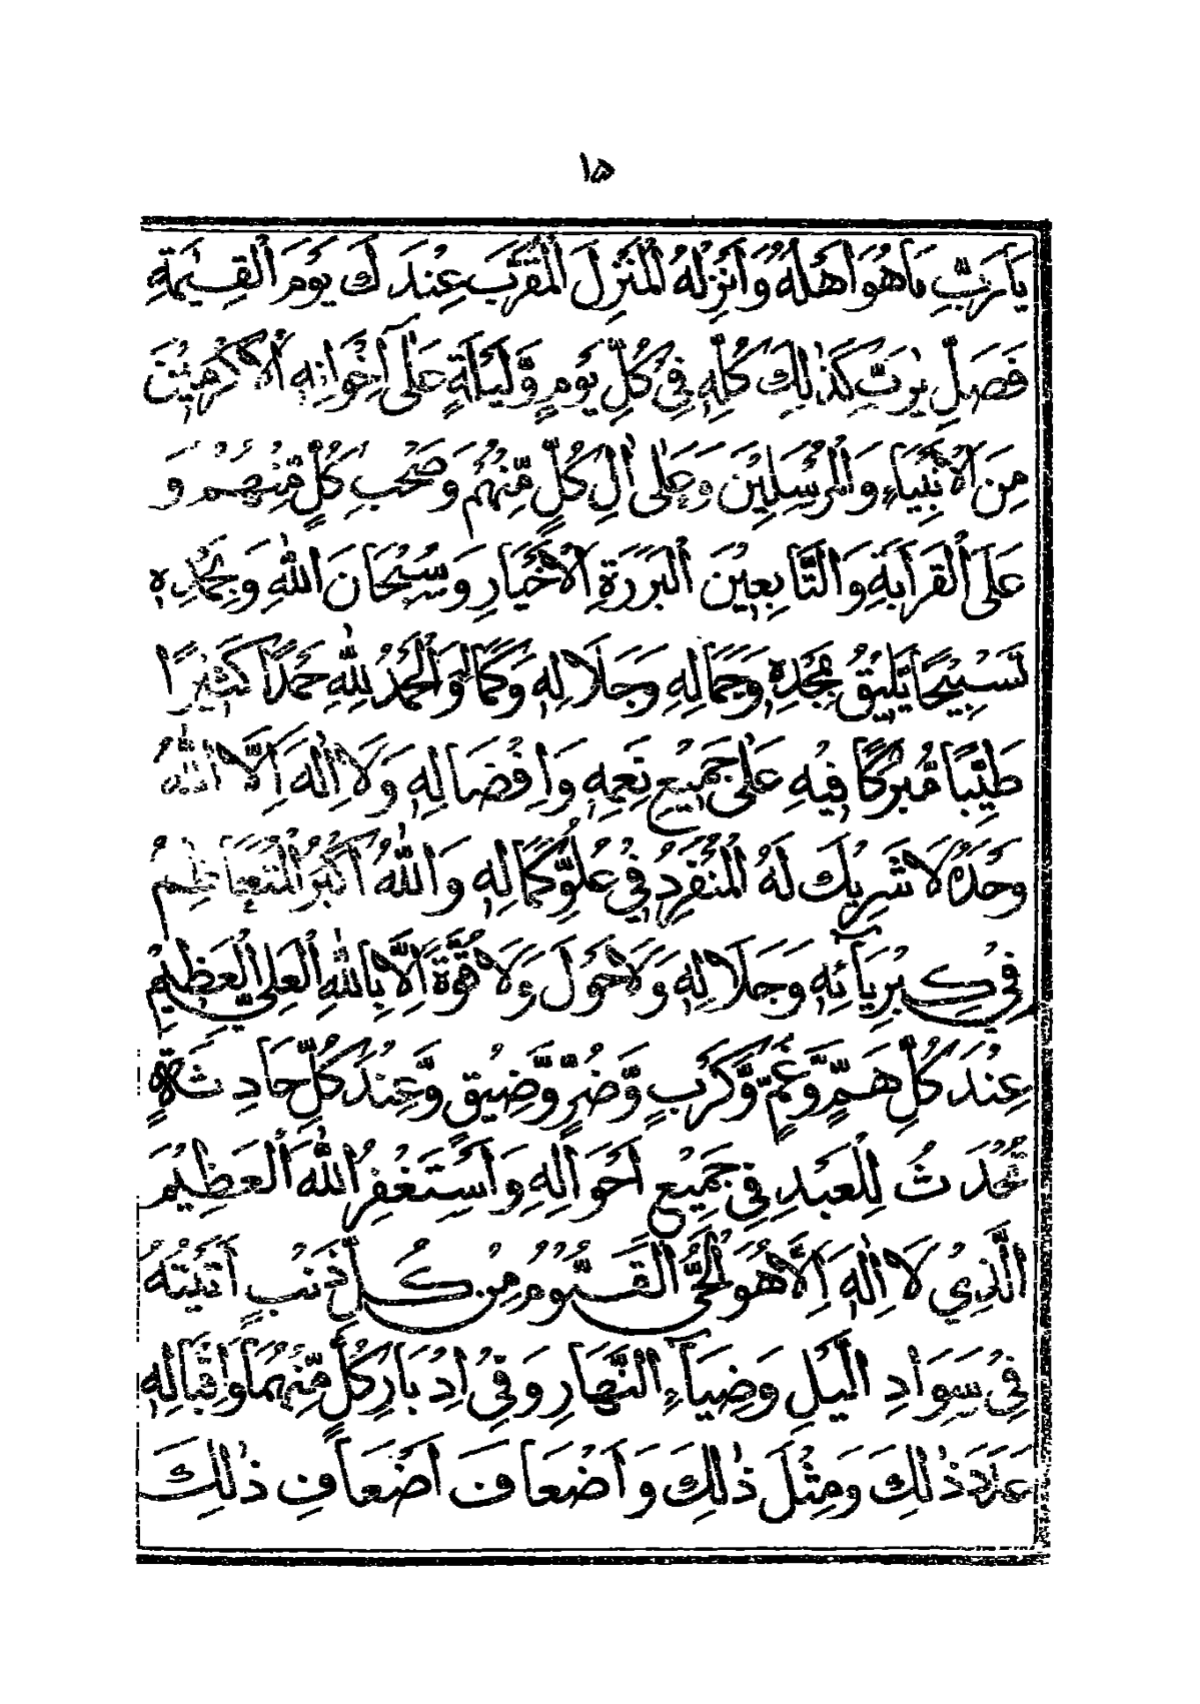 ١٥
يَا رَبِّ مَا هُوَ أَهْلُهُ وَأَنْزِلْهُ الْمَنْزِلَ الْمُقَرَّبَ عِنْدَكَ يَوْمَ الْقِيٰمَةِ
فَصَلِّ يٰرَبِّ كَذٰلِكَ كُلِّهٖ فِيْ كُلِّ يَوْمٍ وَّلَيْلَةٍ عَلٰى إِخْوَانِهٖ الْأَكْرَمِيْنَ
مِنَ الْأَنْبِيَاءِ وَالْمُرْسَلِيْنَ وَعَلٰى اٰلِ كُلٍّ مِّنْهُمْ وَصَحْبِ كُلٍّ مِّنْهُمْ وَ
عَلَى الْقَرَابَةِ وَالتَّابِعِيْنَ الْبَرَرَةِ الْأَخْيَارِ وَسُبْحَانَ اللّٰهِ وَبِحَمْدِهٖ
تَسْبِيْحًا يَّلِيْقُ بِمَجْدِهٖ وَجَمَالِهٖ وَجَلَالِهٖ وَكَمَالِهٖ وَالْحَمْدُ لِلّٰهِ حَمْدًا كَثِيْرًا
طَيِّبًا مُّبٰرَكًا فِيْهِ عَلٰى جَمِيْعِ نِعَمِهٖ وَإِفْضَالِهٖ وَلَا إِلٰهَ إِلَّا اللّٰهُ
وَحْدَهٗ لَا شَرِيْكَ لَهُ الْمُنْفَرِدُ فِيْ عُلُوِّ كَمَالِهٖ وَاللّٰهُ أَكْبَرُ الْمُتَعَاظِمُ
فِيْ كِبْرِيَآئِهٖ وَجَلَالِهٖ وَلَا حَوْلَ وَلَا قُوَّةَ إِلَّا بِاللّٰهِ الْعَلِيِّ الْعَظِيْمِ
عِنْدَ كُلِّ هَمٍّ وَّغَمٍّ وَّكَرْبٍ وَّضُرٍّ وَّضِيْقٍ وَّعِنْدَ كُلِّ حَادِثَةٍ
تَحْدُثُ لِلْعَبْدِ فِيْ جَمِيْعِ أَحْوَالِهٖ وَأَسْتَغْفِرُ اللّٰهَ الْعَظِيْمَ
الَّذِيْ لَا إِلٰهَ إِلَّا هُوَ الْحَيُّ الْقَيُّوْمُ مِنْ كُلِّ ذَنْبٍ أَتَيْتُهٗ
فِيْ سَوَادِ الَّيْلِ وَضِيَآءِ النَّهَارِ وَفِيْ إِدْبَارِ كُلٍّ مِّنْهُمَا وَإِقْبَالِهٖ
عَدَدَ ذٰلِكَ وَمِثْلَ ذٰلِكَ وَأَضْعَافَ أَضْعَافِ ذٰلِكَ